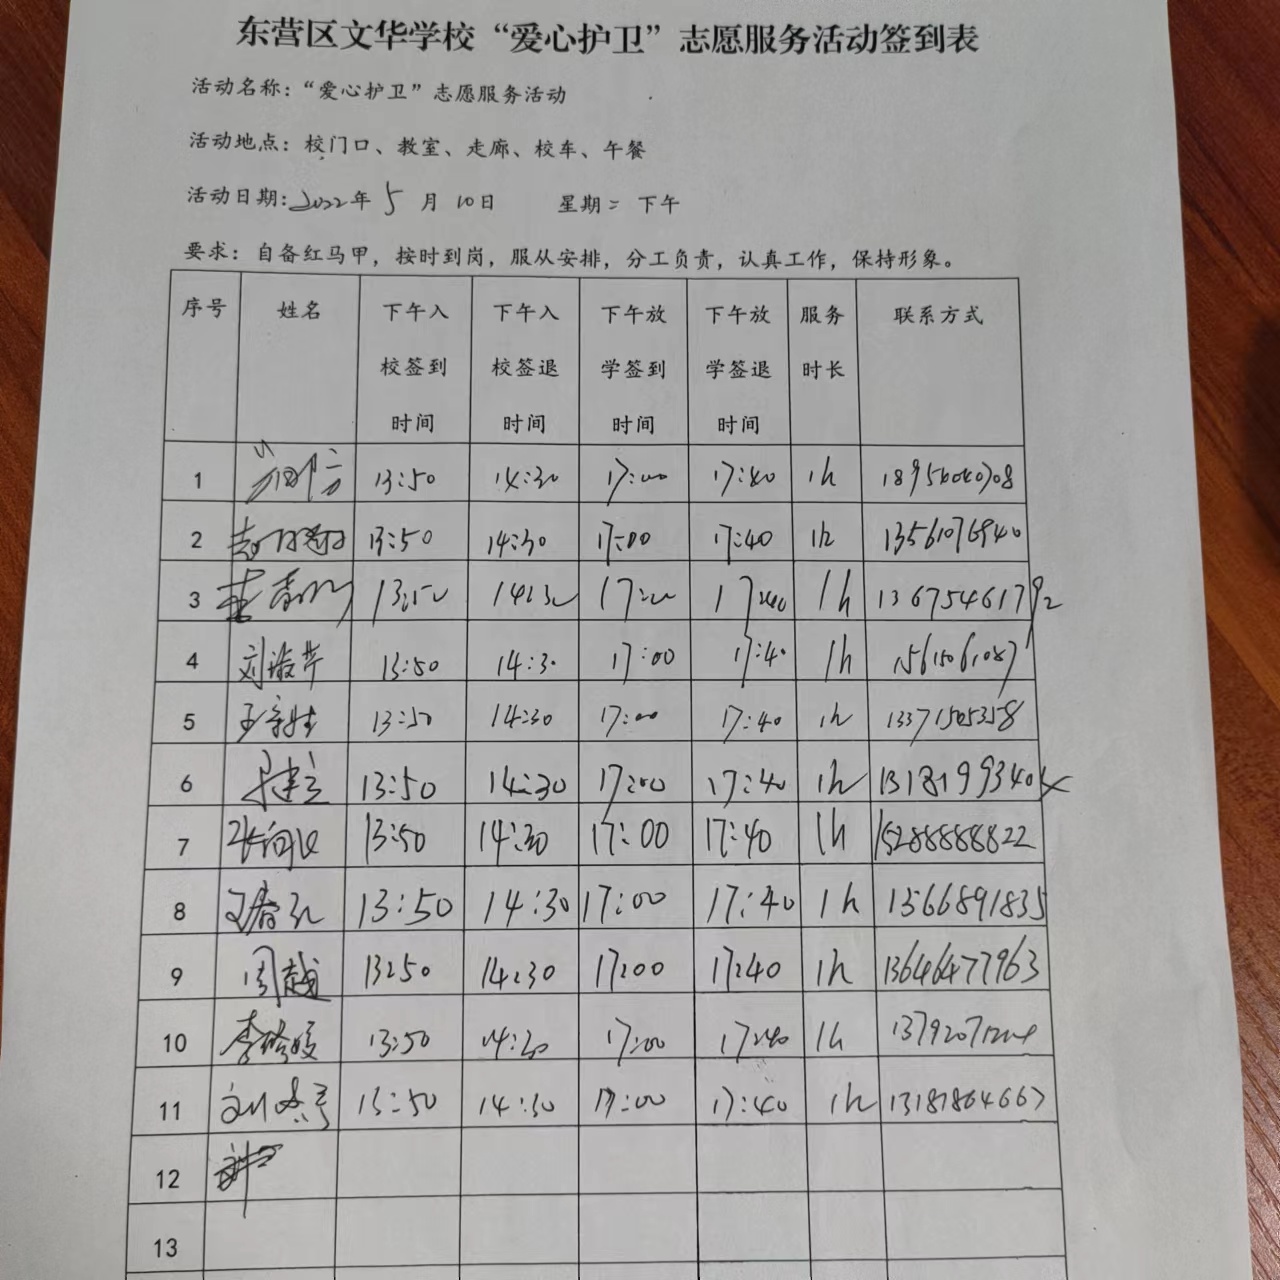 东营区文华学校“爱心护卫”志愿服务活动签到表
活动名称：“爱心护卫”志愿服务活动
活动地点：校门口、教室、走廊、校车、午餐
活动日期：2022年 5 月 10日 星期二 下午
要求：自备红马甲，按时到岗，服从安排，分工负责，认真工作，保持形象。
序号 姓名 下午入校签到时间 下午入校签退时间 下午放学签到时间 下午放学签退时间 服务时长 联系方式
1 13:50 14:30 17:00 17:40 1h
2 13:50 14:30 17:00 17:40 1h 13561076940
3 13:50 14:30 17:00 17:40 1h 13675461792
4 刘淑芹 13:50 14:30 17:00 17:40 1h 15615061087
5 13:50 14:30 17:00 17:40 1h 13371505358
6 13:50 14:30 17:00 17:40 1h 1318199340
7 13:50 14:30 17:00 17:40 1h 15288888822
8 13:50 14:30 17:00 17:40 1h 13566891835
9 周越 13:50 14:30 17:00 17:40 1h 13646477963
10 13:50 14:30 17:00 17:40 1h
11 13:50 14:30 17:00 17:40 1h 13181864667
12
13